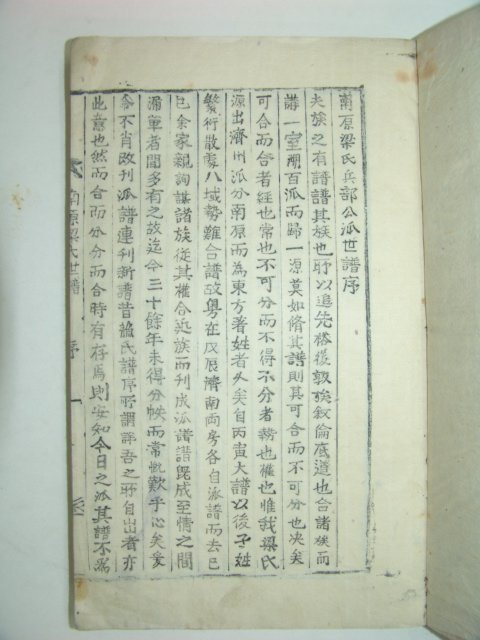 南原梁氏兵部公派世譜序
夫族之有譜譜其族也所以追先裕後敦族叙倫底道也合諸族而
譜一室開百派而歸一源莫如脩其譜則其可合而不可分也决矣
可合而合者經也常也不可分而不得不分者勢也權也惟我梁氏
源出濟州派分南原而為東方著姓者久矣自丙寅大譜以後子姓
繁衍散處八域勢難合譜故粤在戊辰濟南両房各自派譜而去已
已余家親詢謀諸族從其權合近族而刊成派譜譜旣成至情之間
漏單者間多有之故迄今三十餘年未得分帙而常慨歎乎心矣爰
余不肖改刊派譜連刊新譜昔蘇氏譜序所謂詳吾之所自出者亦
此意也然而合而分分而合時有存焉則安知今日之派其譜不為
南原梁氏世譜 序 一